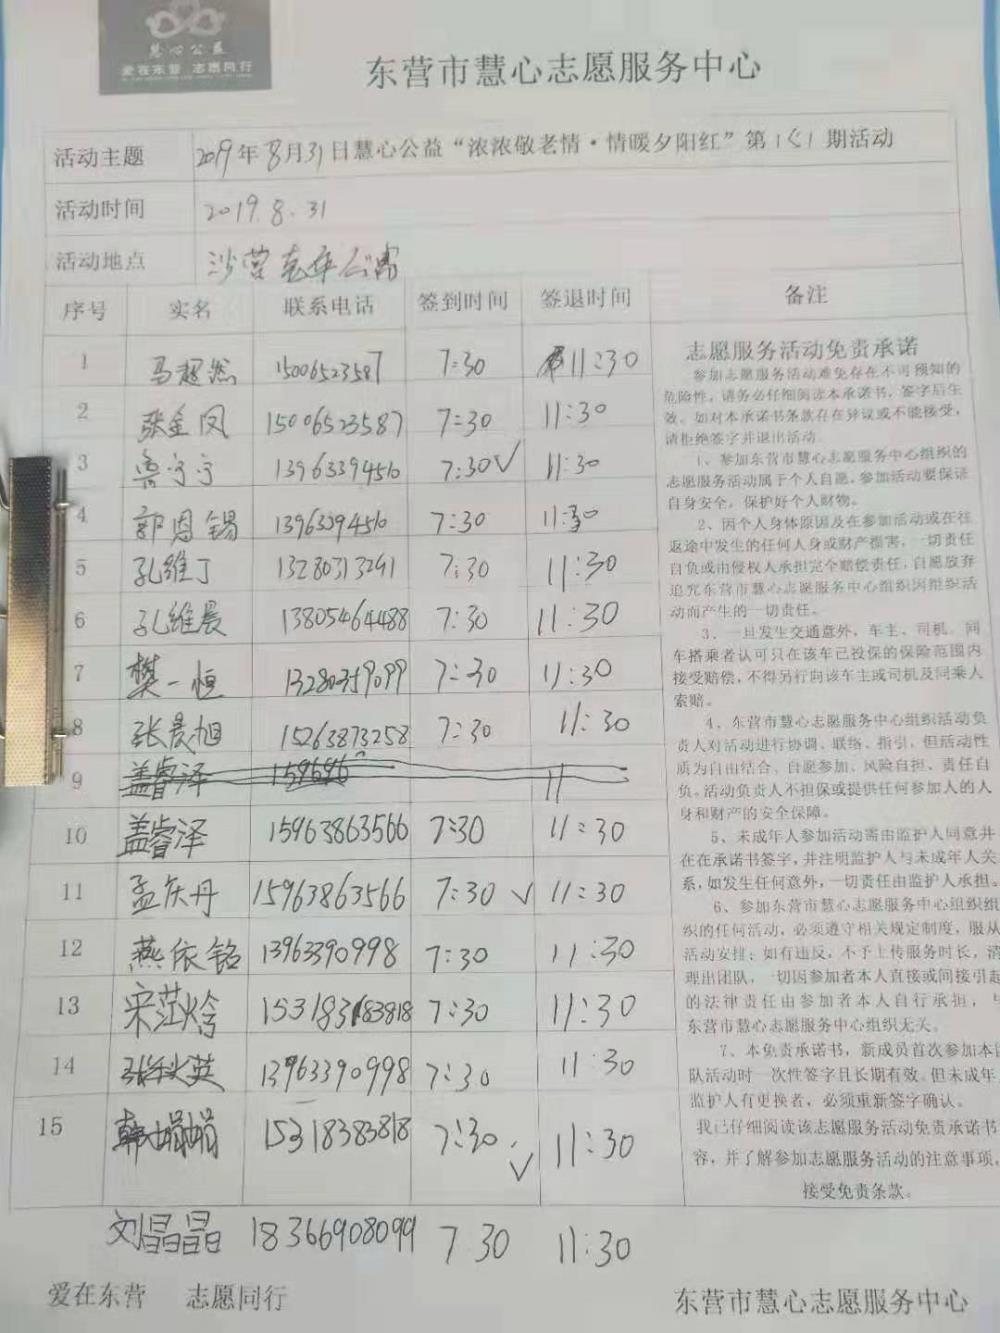 慧心公益
爱在东营 志愿同行
东营市慧心志愿服务中心
活动主题 2019年8月31日慧心公益“浓浓敬老情·情暖夕阳红”第 期活动
活动时间 2019.8.31
活动地点 沙营老年公寓
序号 实名 联系电话 签到时间 签退时间 备注
1 马超然 15006523587 7:30 11:30
2 张金凤 15006523587 7:30 11:30
3 鲁宁宁 13963394510 7:30√ 11:30
4 郭恩锡 1396309 7:30 11:30
5 孔维丁 13280313241 7:30 11:30
6 孔维晨 13805464488 7:30 11:30
7 樊一恒 13280359099 7:30 11:30
8 张晨旭 15263873258 7:30 11:30
9 盖睿泽 11
10 盖睿泽 15963863566 7:30 11:30
11 孟庆丹 15963863566 7:30 √ 11:30
12 燕依铭 13963390998 7:30 11:30
13 宋 7:30 11:30
14 张秋英 13963390998 7:30 11:30
15 韩娟娟 15318383818 7:30 √ 11:30
刘晶晶 18366908099 7 30 11:30
志愿服务活动免责承诺
参加志愿服务活动难免存在不可预知的
危险性,请务必仔细阅读本承诺书,签字后生
效。如对本承诺书条款存在异议或不能接受,
请拒绝签字并退出活动
1、参加东营市慧心志愿服务中心组织的
志愿服务活动属于个人自愿。参加活动要保证
自身安全,保护好个人财物。
2、因个人身体原因及在参加活动或在往
返途中发生的任何人身或财产损害,一切责任
自负或由侵权人承担完全赔偿责任,自愿放弃
追究东营市慧心志愿服务中心组织因组织活
动而产生的一切责任。
3、一旦发生交通意外,车主、司机、同
车搭乘者认可只在该车已投保的保险范围内
接受赔偿,不得另行向该车主或司机及同乘人
索赔。
4、东营市慧心志愿服务中心组织活动负
责人对活动进行协调、联络、指引,但活动性
质为自由结合、自愿参加、风险自担、责任自
负。活动负责人不担保或提供任何参加人的人
身和财产的安全保障。
5、未成年人参加活动需由监护人同意并
在在承诺书签字,并注明监护人与未成年人关
系,如发生任何意外,一切责任由监护人承担。
6、参加东营市慧心志愿服务中心组织组
织的任何活动,必须遵守相关规定制度,服从
活动安排;如有违反,不予上传服务时长,清
理出团队,一切因参加者本人直接或间接引起
的法律责任由参加者本人自行承担,与
东营市慧心志愿服务中心组织无关。
7、本免责承诺书,新成员首次参加本团
队活动时一次性签字且长期有效。但未成年
监护人有更换者,必须重新签字确认。
我已仔细阅读该志愿服务活动免责承诺书
容,并了解参加志愿服务活动的注意事项,
接受免责条款。
爱在东营 志愿同行 东营市慧心志愿服务中心